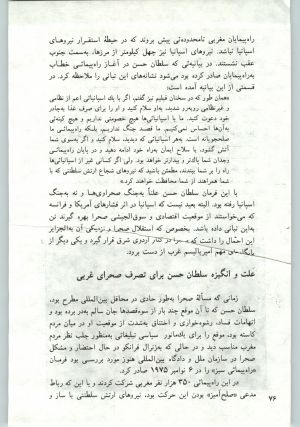 راه‌پیمایان مغربی نامحدوده‌ئی پیش بروند که در حیطهٔ استقرار نیروهای
اسپانیا نباشد. نیروهای اسپانیا نیز چهل کیلومتر از مرزها، به‌سمت جنوب
عقب نشستند. در بیانیه‌ئی که سلطان حسن در آغاز راه‌پیمائی خطاب
به‌راه‌پیمایان صادر کرده بود می‌شود نشانه‌های این تبانی را ملاحظه کرد.
قسمتی از این بیانیه آمده است:
«همان طور که در سخنان قبلیم نیز گفتم، اگر با یک اسپانیائی اعم از نظامی
و غیرنظامی روبه‌رو شدید، به‌او سلام کنید و او را برای صرف غذا به‌چادر
خود دعوت کنید. ما با اسپانیائی‌ها هیچ خصومتی نداریم و هیچ کینه‌ئی
به‌آن‌ها احساس نمی‌کنیم. ما قصد جنگ نداریم، بلکه راه‌پیمائی ما
صلحجویانه است. هر اسپانیائی که دیدید، سلام کنید و اگر به‌سوی شما
آتش گشود، با سلاح ایمان به‌راه خود ادامه دهید و در پایان راه‌پیمائی
وجدان شما بالاتر و بیدارتر خواهد بود. ولی اگر کسانی غیر از اسپانیائی‌ها
راه را بر شما ببندند، مطمئن باشید که نیروهای شجاع ارتش سلطنتی که با
شما همراهند از شما محافظت خواهند کرد.»
با این فرمان سلطان حسن علناً به‌جنگ صحراوی‌ها و نه به‌جنگ
اسپانیا رفت. البته بعید نیست که اسپانیا در اثر فشارهای آمریکا و فرانسه
که می‌خواستند از موقعیت اقتصادی و سوق‌الجیشی صحرا بهره گیرند تن
به‌این تبانی داده باشد. بخصوص که استقلال صحرا و نزدیکی آن به‌الجزایر
این احتمال را داشت که صحرا در کنار اردوی شرق قرار گیرد و یکی دیگر از
پایگاه‌های مهم امپریالیسم غرب از دست برود.
علت و انگیزه سلطان حسن برای تصرف صحرای غربی
زمانی که مسألهٔ صحرا به‌طور حادی در محافل بین‌المللی مطرح بود،
سلطان حسن که تا آن موقع چند بار از سوءقصدها جان سالم به‌در برده بود و
اتهامات فساد، رشوه‌خواری و اختناق به‌شدت از موقعیت او در میان مردم
کاسته بود، موقع را برای یک‌مانور سیاسی تبلیغاتی به‌منظور جلب نظر مردم
مغرب مناسب دید و در حالی که به‌ژنرال فرانکو در حال احتضار بود و مسألهٔ
صحرا در سازمان ملل و دادگاه بین‌المللی هنوز مورد بررسی بود فرمان
«راه‌پیمائی سبز» را در ۶ نوامبر ۱۹۷۵ صادر کرد.
در این راه‌پیمائی ۳۵۰ هزار نفر مغربی شرکت کردند و با این که رباط
مدعی «صلح‌آمیز» بودن این حرکت بود، نیروهای ارتش سلطنتی با ساز و
۷۶